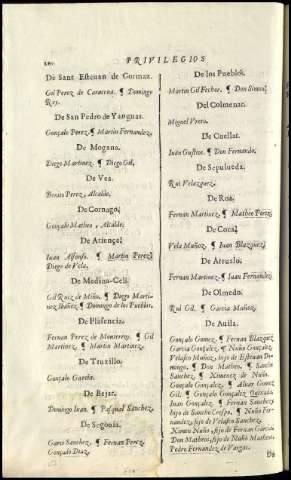 PRIVILEGIOS
De Sant Esteuan de Gormaz.
Gil Perez de Caracena. ¶ Domingo
Ruy.
De San Pedro de Yanguas.
Gonçalo Perez. ¶ Martin Fernandez.
De Mogana.
Diego Martinez. ¶ Diego Gil.
De Vea.
Benito Perez, Alcalde.
De Cornago.
Gonçalo Matheo, Alcalde.
De Atiença.
Iuan Alfonso. ¶ Martin Perez.
Diego de Vela.
De Medina-Celi.
Gil Ruiz de Miño. ¶ Diego Marti-
nez Ibañez. ¶ Domingo de los Pueblos.
De Plasencia.
Fernan Perez de Monterroy. ¶ Gil
Martinez. ¶ Martin Martinez.
De Truxillo.
Gonçalo Garcia.
De Bejar.
Domingo Iuan. ¶ Pasqual Sanchez.
De Segouia.
Garci Sanchez. ¶ Fernan Perez.
Gonçalo Diaz.
De los Pueblos.
Martin Gil Fecher. ¶ Don Somna.
Del Colmenar.
Miguel Vrero.
De Cuellar.
Iuan Gustioz. ¶ Don Fernando.
De Sepulueda.
Rui Velazquez.
De Roa.
Fernan Martinez. ¶ Matheo Perez.
De Coca.
Vela Muñoz. ¶ Iuan Blazquez.
De Areualo.
Fernan Martinez. ¶ Iuan Fernandez.
De Olmedo.
Rui Gil. ¶ Garcia Muñoz.
De Auila.
Gonçalo Gomez. ¶ Fernan Blazquez
Garcia Gonçalez. ¶ Nuño Gonçalez
Velasco Muñoz, hijo de Esteuan Do-
mingo. ¶ Don Matheo. ¶ Sancho
Sanchez. ¶ Ximenez de Nuño.
Gonçalo Gonçalez. ¶ Aluar Gomez
Gil. ¶ Gonçalo Gonçalez
Iuan Sanchez. ¶ Fernan Sanchez
hijo de Sancho Crespo. ¶ Nuño Fer-
nandez, hijo de Velasco Sanchez.
Nuño, hijo de Fernan Garcia
Don Matheos, hijo de Nuño Matheos
Pedro Fernandez de Vargas.
De